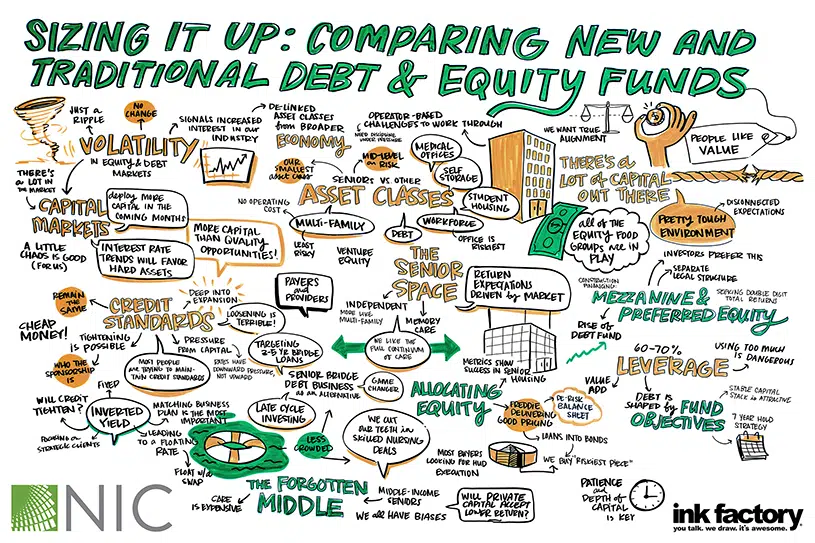 SIZING IT UP: COMPARING NEW AND
TRADITIONAL DEBT & EQUITY FUNDS
JUST A
RIPPLE
NO
CHANGE
VOLATILITY
IN EQUITY & DEBT
MARKETS
SIGNALS INCREASED
INTEREST IN OUR
INDUSTRY
THERE'S
A LOT IN
THE MARKET
CAPITAL
MARKETS
deploy MORE
CAPITAL IN THE
COMING MONTHS
INTEREST RATE
TRENDS WILL FAVOR
HARD ASSETS
A LITTLE
CHAOS IS GOOD
(FOR US)
MORE CAPITAL
THAN QUALITY
OPPORTUNITIES!
DE-LINKED
ASSET CLASSES
FROM BROADER
ECONOMY
OPERATOR-BASED
CHALLENGES TO WORK THROUGH
OUR
SMALLEST
ASSET CLASS
MID-LEVEL
ON RISK
SENIORS VS OTHER
ASSET CLASSES
MEDICAL
OFFICES
SELF
STORAGE
STUDENT
HOUSING
WORKFORCE
DEBT
MULTI-FAMILY
NO OPERATING
COST
LEAST
RISKY
VENTURE
EQUITY
OFFICE IS
RISKIEST
WE WANT TRUE
ALIGNMENT
PEOPLE LIKE
VALUE
THERE'S A
LOT OF CAPITAL
OUT THERE
all OF THE
EQUITY FOOD
GROUPS ARE IN
PLAY
PRETTY TOUGH
ENVIRONMENT
DISCONNECTED
EXPECTATIONS
REMAIN
THE
SAME
CREDIT
STANDARDS
DEEP INTO
EXPANSION
LOOSENING IS
TERRIBLE!
CHEAP
MONEY!
TIGHTENING
IS POSSIBLE
MOST PEOPLE
ARE TRYING TO MAIN-
TAIN CREDIT STANDARDS
PRESSURE
FROM CAPITAL
RATES HAVE
DOWNWARD PRESSURE,
NOT UPWARD
WHO THE
SPONSORSHIP
IS
PAYERS
and
PROVIDERS
THE
SENIOR
SPACE
INDEPENDENT
MORE LIKE
MULTI-FAMILY
MEMORY
CARE
WE LIKE THE
FULL CONTINUUM
OF CARE
RETURN
EXPECTATIONS
DRIVEN BY MARKET
METRICS SHOW
SUCCESS IN SENIOR
HOUSING
TARGETING
2-5 YR BRIDGE
LOANS
SENIOR BRIDGE
DEBT BUSINESS
AS AN ALTERNATIVE
GAME
CHANGER
LATE CYCLE
INVESTING
INVESTORS PREFER THIS
SEPARATE
LEGAL STRUCTURE
MEZZANINE &
PREFERRED EQUITY
SEEKING DOUBLE DIGIT
TOTAL RETURNS
RISE OF
DEBT FUND
60-70%
LEVERAGE
USING TOO MUCH
IS DANGEROUS
VALUE
ADD
DEBT IS
SHAPED by
FUND
OBJECTIVES
STABLE CAPITAL
STACK IS ATTRACTIVE
7 YEAR HOLD
STRATEGY
ALLOCATING
EQUITY
FREDDIE
DELIVERING
GOOD PRICING
DE-RISK
BALANCE
SHEET
LOANS INTO BONDS
WE BUY "RISKIEST PIECE"
MOST BUYERS
LOOKING FOR HUD
EXECUTION
FIXED
WILL CREDIT
TIGHTEN?
INVERTED
YIELD
MATCHING BUSINESS
PLAN IS THE MOST
IMPORTANT
LEADING
TO A FLOATING
RATE
STRATEGIC CLIENTS
FLOAT w/a
SWAP
LESS
CROWDED
WE CUT
OUR TEETH in
SKILLED NURSING
DEALS
THE FORGOTTEN
MIDDLE
CARE
IS EXPENSIVE
MIDDLE-INCOME
SENIORS
WE all HAVE BIASES
WILL PRIVATE
CAPITAL ACCEPT
LOWER RETURN?
PATIENCE
and
DEPTH OF
CAPITAL
IS KEY
NIC
ink factory
you talk. we draw. it's awesome.